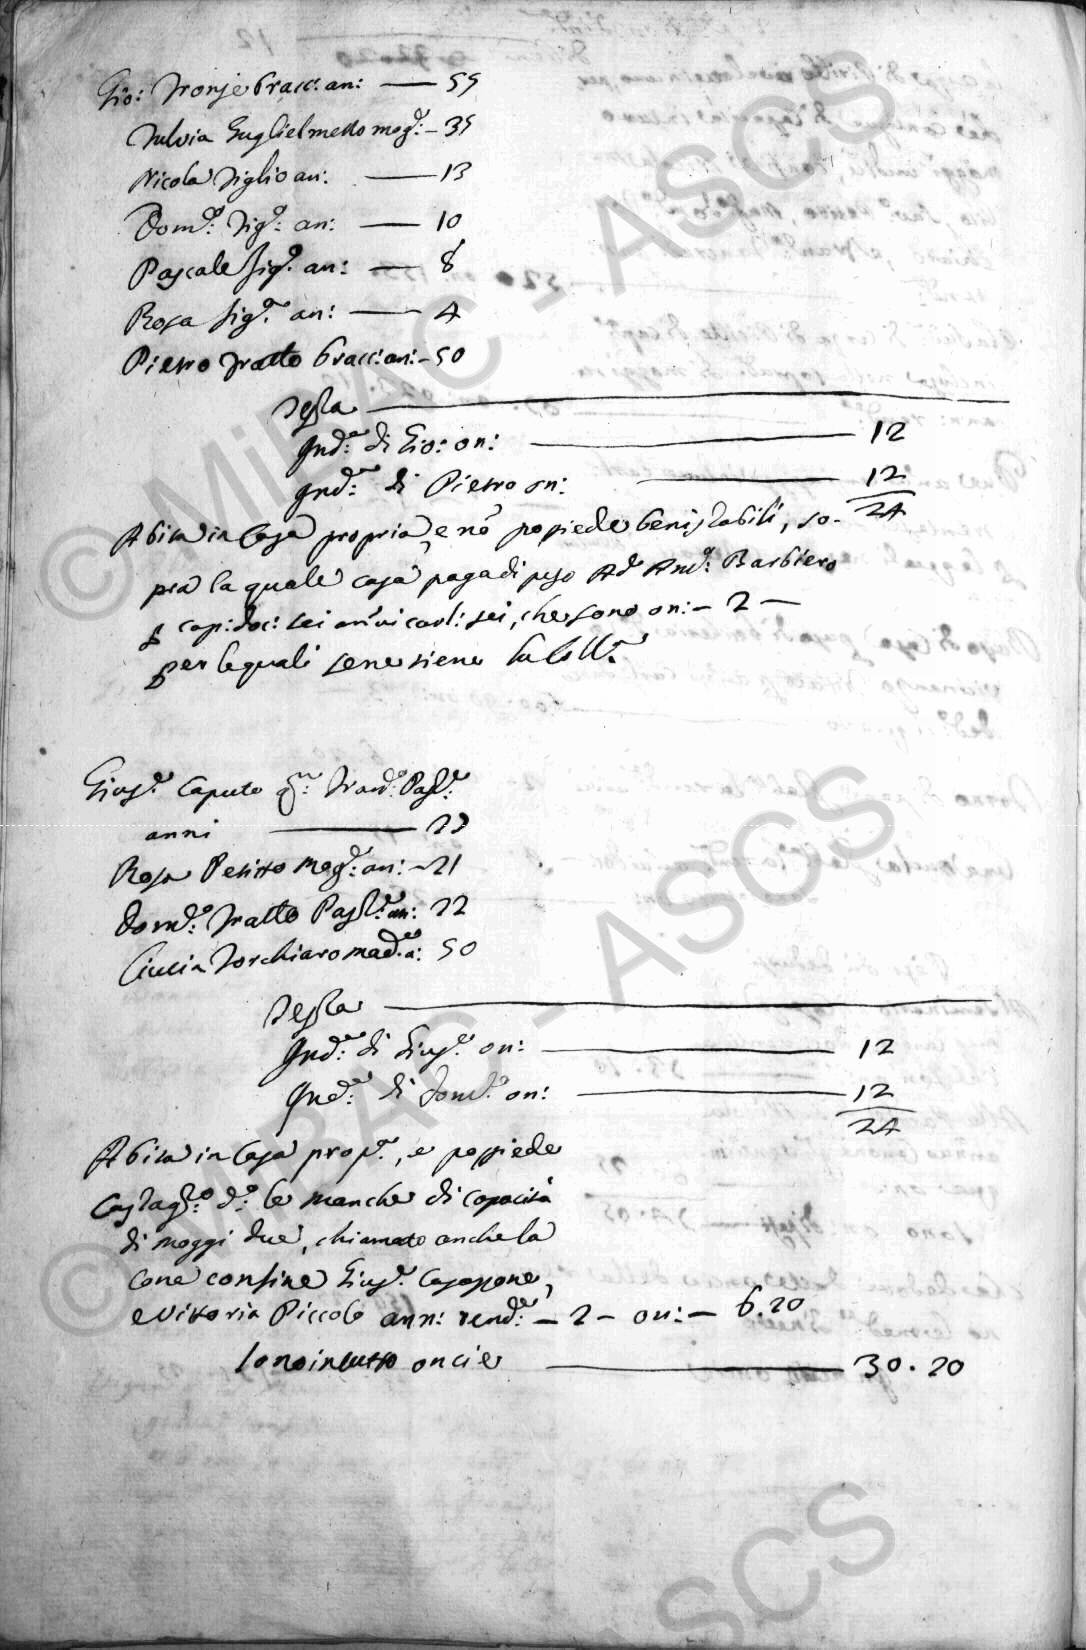 Gio: Fronje bracc: an: — 55
Fulvia Guglielmello mog:e — 35
Nicola figlio an: — 13
Dom:co fig:o an: — 10
Pascale fig:o an: — 8
Rosa fig:a an: — 4
Pietro Fratto bracc: an: — 50
Testa —
Ind:a di Gio: on: — 12
Ind:a di Pietro on: — 12
24
Abita in Casa propria, e nō possiede beni stabili, so-
pra la quale casa paga di peso Ad And:a Barbiero
p cap: doc: sei annui carl: sei, che sono on: — 2 —
per le quali se ne tiene
Gius:e Caputo qm: Fran:co Past:e
anni — 23
Rosa Petitto mog:e an: — 21
Dom:co Fratto Past:e an: 22
Giulia Torchiaro mad:e a: 50
Testa —
Ind:a di Gius:e on: — 12
Ind:a di Dom:co on: — 12
24
Abita in Casa prop:a, e possiede
Castag:to d:o le manche di capacità
di moggi due, chiamato anche la
cona confine Gius:e
e Vittoria Piccolo ann: rend:a — 2 — on: — 6.20
sono in tutto oncie — 30.20
© MiBAC - ASCS
© MiBAC - ASCS
ASCS